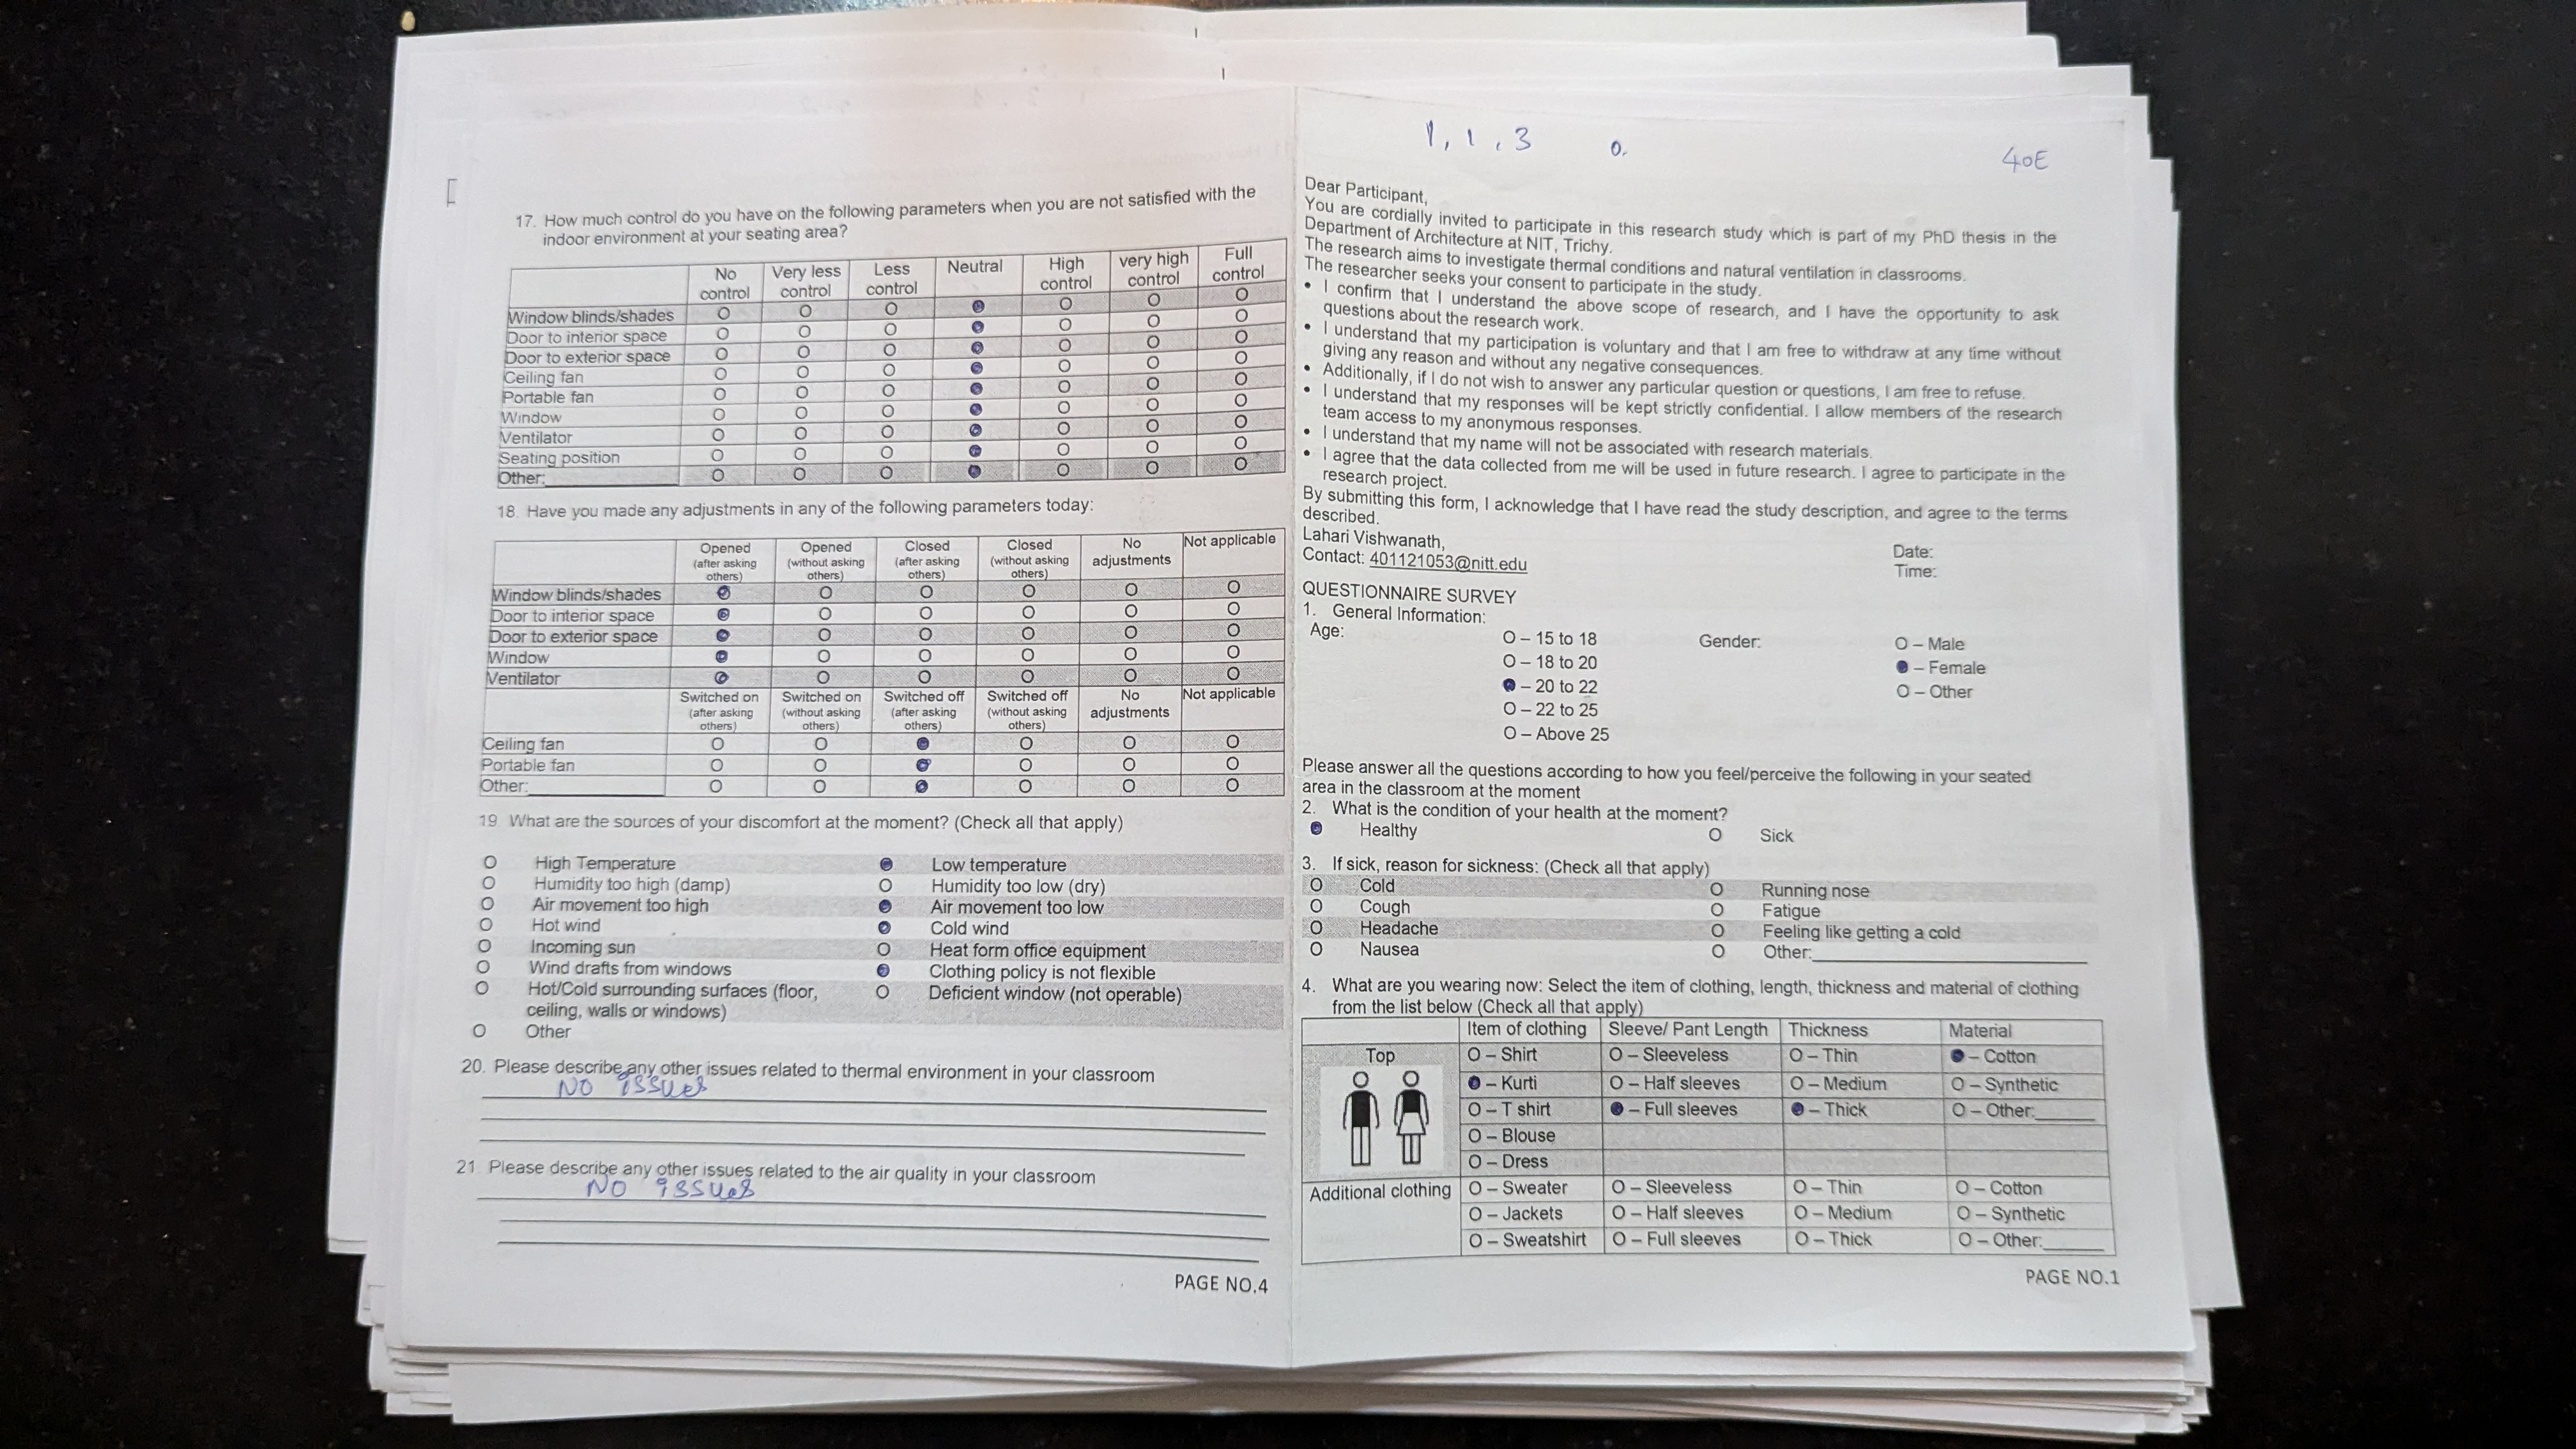 17. How much control do you have on the following parameters when you are not satisfied with the
indoor environment at your seating area?
No control Very less control Less control Neutral High control very high control Full control
Window blinds/shades O O O ● O O O
Door to interior space O O O ● O O O
Door to exterior space O O O ● O O O
Ceiling fan O O O ● O O O
Portable fan O O O ● O O O
Window O O O ● O O O
Ventilator O O O ● O O O
Seating position O O O ● O O O
Other: O O O ● O O O
18. Have you made any adjustments in any of the following parameters today:
Opened (after asking others) Opened (without asking others) Closed (after asking others) Closed (without asking others) No adjustments Not applicable
Window blinds/shades ● O O O O O
Door to interior space ● O O O O O
Door to exterior space ● O O O O O
Window ● O O O O O
Ventilator ● O O O O O
Switched on (after asking others) Switched on (without asking others) Switched off (after asking others) Switched off (without asking others) No adjustments Not applicable
Ceiling fan O O ● O O O
Portable fan O O ● O O O
Other: O O ● O O O
19. What are the sources of your discomfort at the moment? (Check all that apply)
O High Temperature ● Low temperature
O Humidity too high (damp) O Humidity too low (dry)
O Air movement too high ● Air movement too low
O Hot wind ● Cold wind
O Incoming sun O Heat form office equipment
O Wind drafts from windows ● Clothing policy is not flexible
O Hot/Cold surrounding surfaces (floor, O Deficient window (not operable)
ceiling, walls or windows)
O Other
20. Please describe any other issues related to thermal environment in your classroom
NO issues
21. Please describe any other issues related to the air quality in your classroom
NO issues
PAGE NO.4
1, 1, 3 0. 40E
Dear Participant,
You are cordially invited to participate in this research study which is part of my PhD thesis in the
Department of Architecture at NIT, Trichy.
The research aims to investigate thermal conditions and natural ventilation in classrooms.
The researcher seeks your consent to participate in the study.
• I confirm that I understand the above scope of research, and I have the opportunity to ask
questions about the research work.
• I understand that my participation is voluntary and that I am free to withdraw at any time without
giving any reason and without any negative consequences.
• Additionally, if I do not wish to answer any particular question or questions, I am free to refuse.
• I understand that my responses will be kept strictly confidential. I allow members of the research
team access to my anonymous responses.
• I understand that my name will not be associated with research materials.
• I agree that the data collected from me will be used in future research. I agree to participate in the
research project.
By submitting this form, I acknowledge that I have read the study description, and agree to the terms
described.
Lahari Vishwanath, Date:
Contact: 401121053@nitt.edu Time:
QUESTIONNAIRE SURVEY
1. General Information:
Age: O – 15 to 18 Gender: O – Male
O – 18 to 20 ● – Female
● – 20 to 22 O – Other
O – 22 to 25
O – Above 25
Please answer all the questions according to how you feel/perceive the following in your seated
area in the classroom at the moment
2. What is the condition of your health at the moment?
● Healthy O Sick
3. If sick, reason for sickness: (Check all that apply)
O Cold O Running nose
O Cough O Fatigue
O Headache O Feeling like getting a cold
O Nausea O Other:
4. What are you wearing now: Select the item of clothing, length, thickness and material of clothing
from the list below (Check all that apply)
Item of clothing Sleeve/ Pant Length Thickness Material
Top O – Shirt O – Sleeveless O – Thin ● – Cotton
● – Kurti O – Half sleeves O – Medium O – Synthetic
O – T shirt ● – Full sleeves ● – Thick O – Other:
O – Blouse
O – Dress
Additional clothing O – Sweater O – Sleeveless O – Thin O – Cotton
O – Jackets O – Half sleeves O – Medium O – Synthetic
O – Sweatshirt O – Full sleeves O – Thick O – Other:
PAGE NO.1